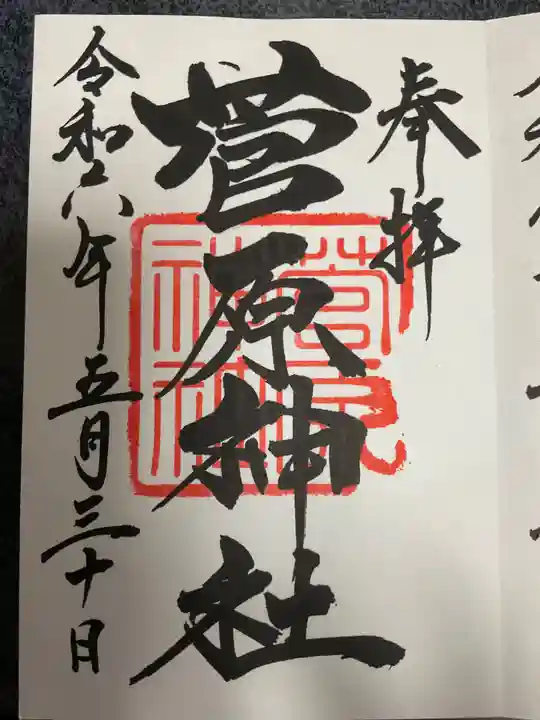 奉拝
菅原神社
菅原
神社
令和六年五月三十日